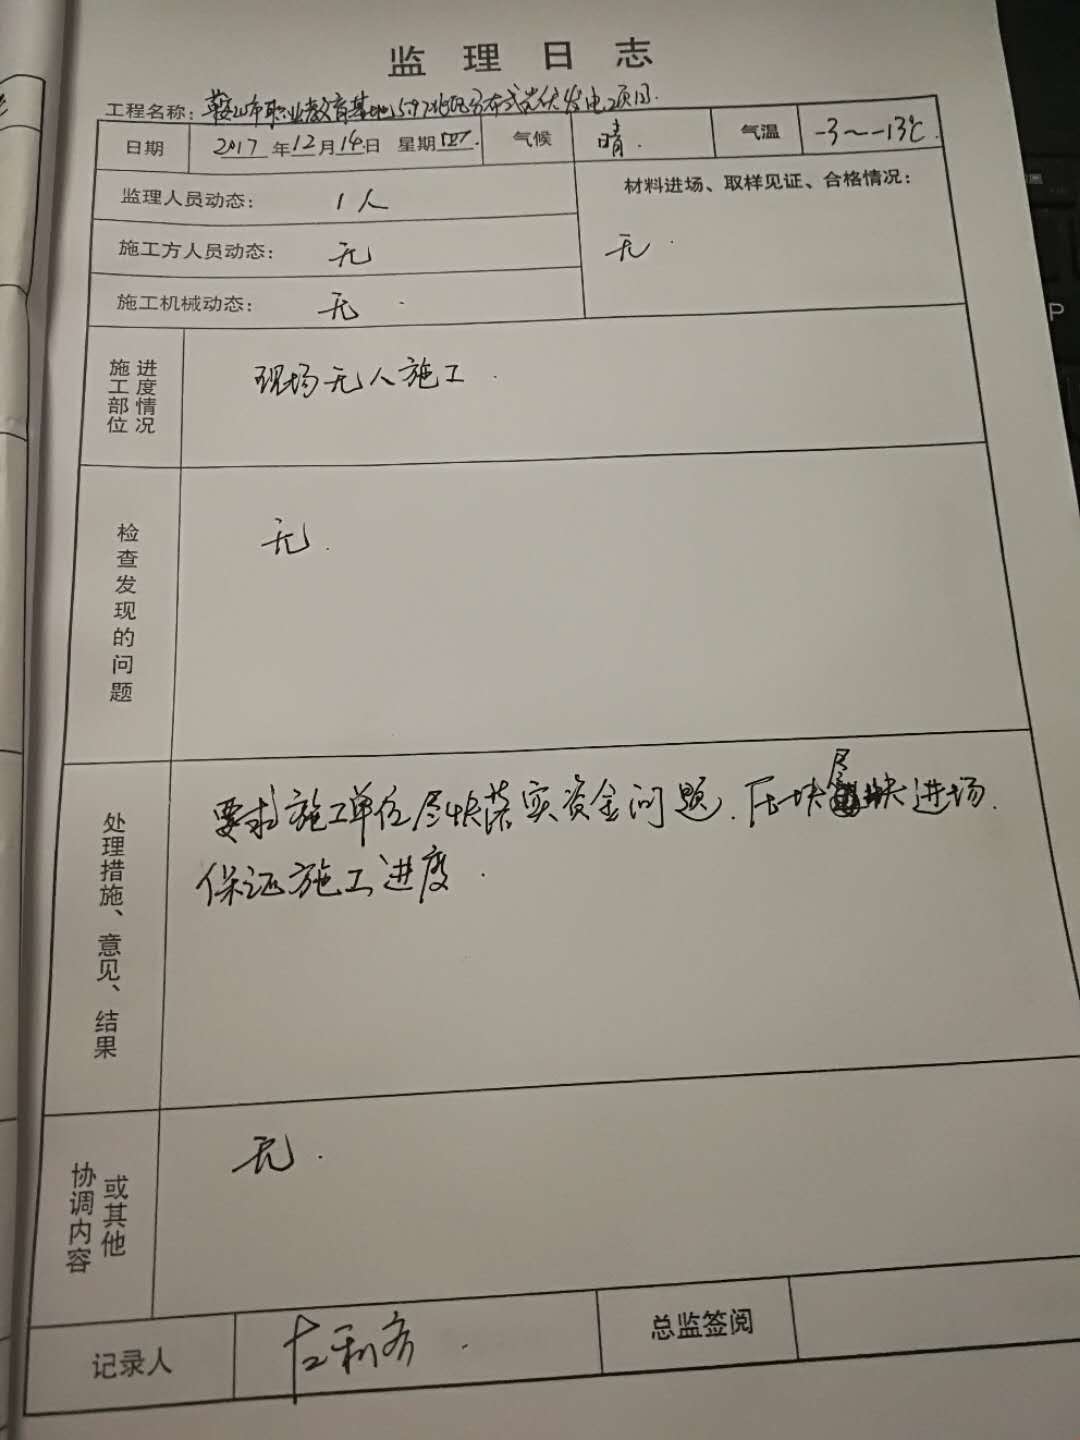 监理日志
工程名称：鞍山市职业教育基地5.97兆瓦分布式光伏发电项目.
日期 2017年12月14日 星期四. 气候 晴. 气温 -3～-13℃.
监理人员动态： 1人
材料进场、取样见证、合格情况：
施工方人员动态： 无
无.
施工机械动态： 无.
施工部位进度情况 现场无人施工.
检查发现的问题 无.
处理措施、意见、结果 要求施工单位尽快落实资金问题.压块尽快进场.
保证施工进度.
协调内容或其他 无.
记录人 左利 总监签阅
P